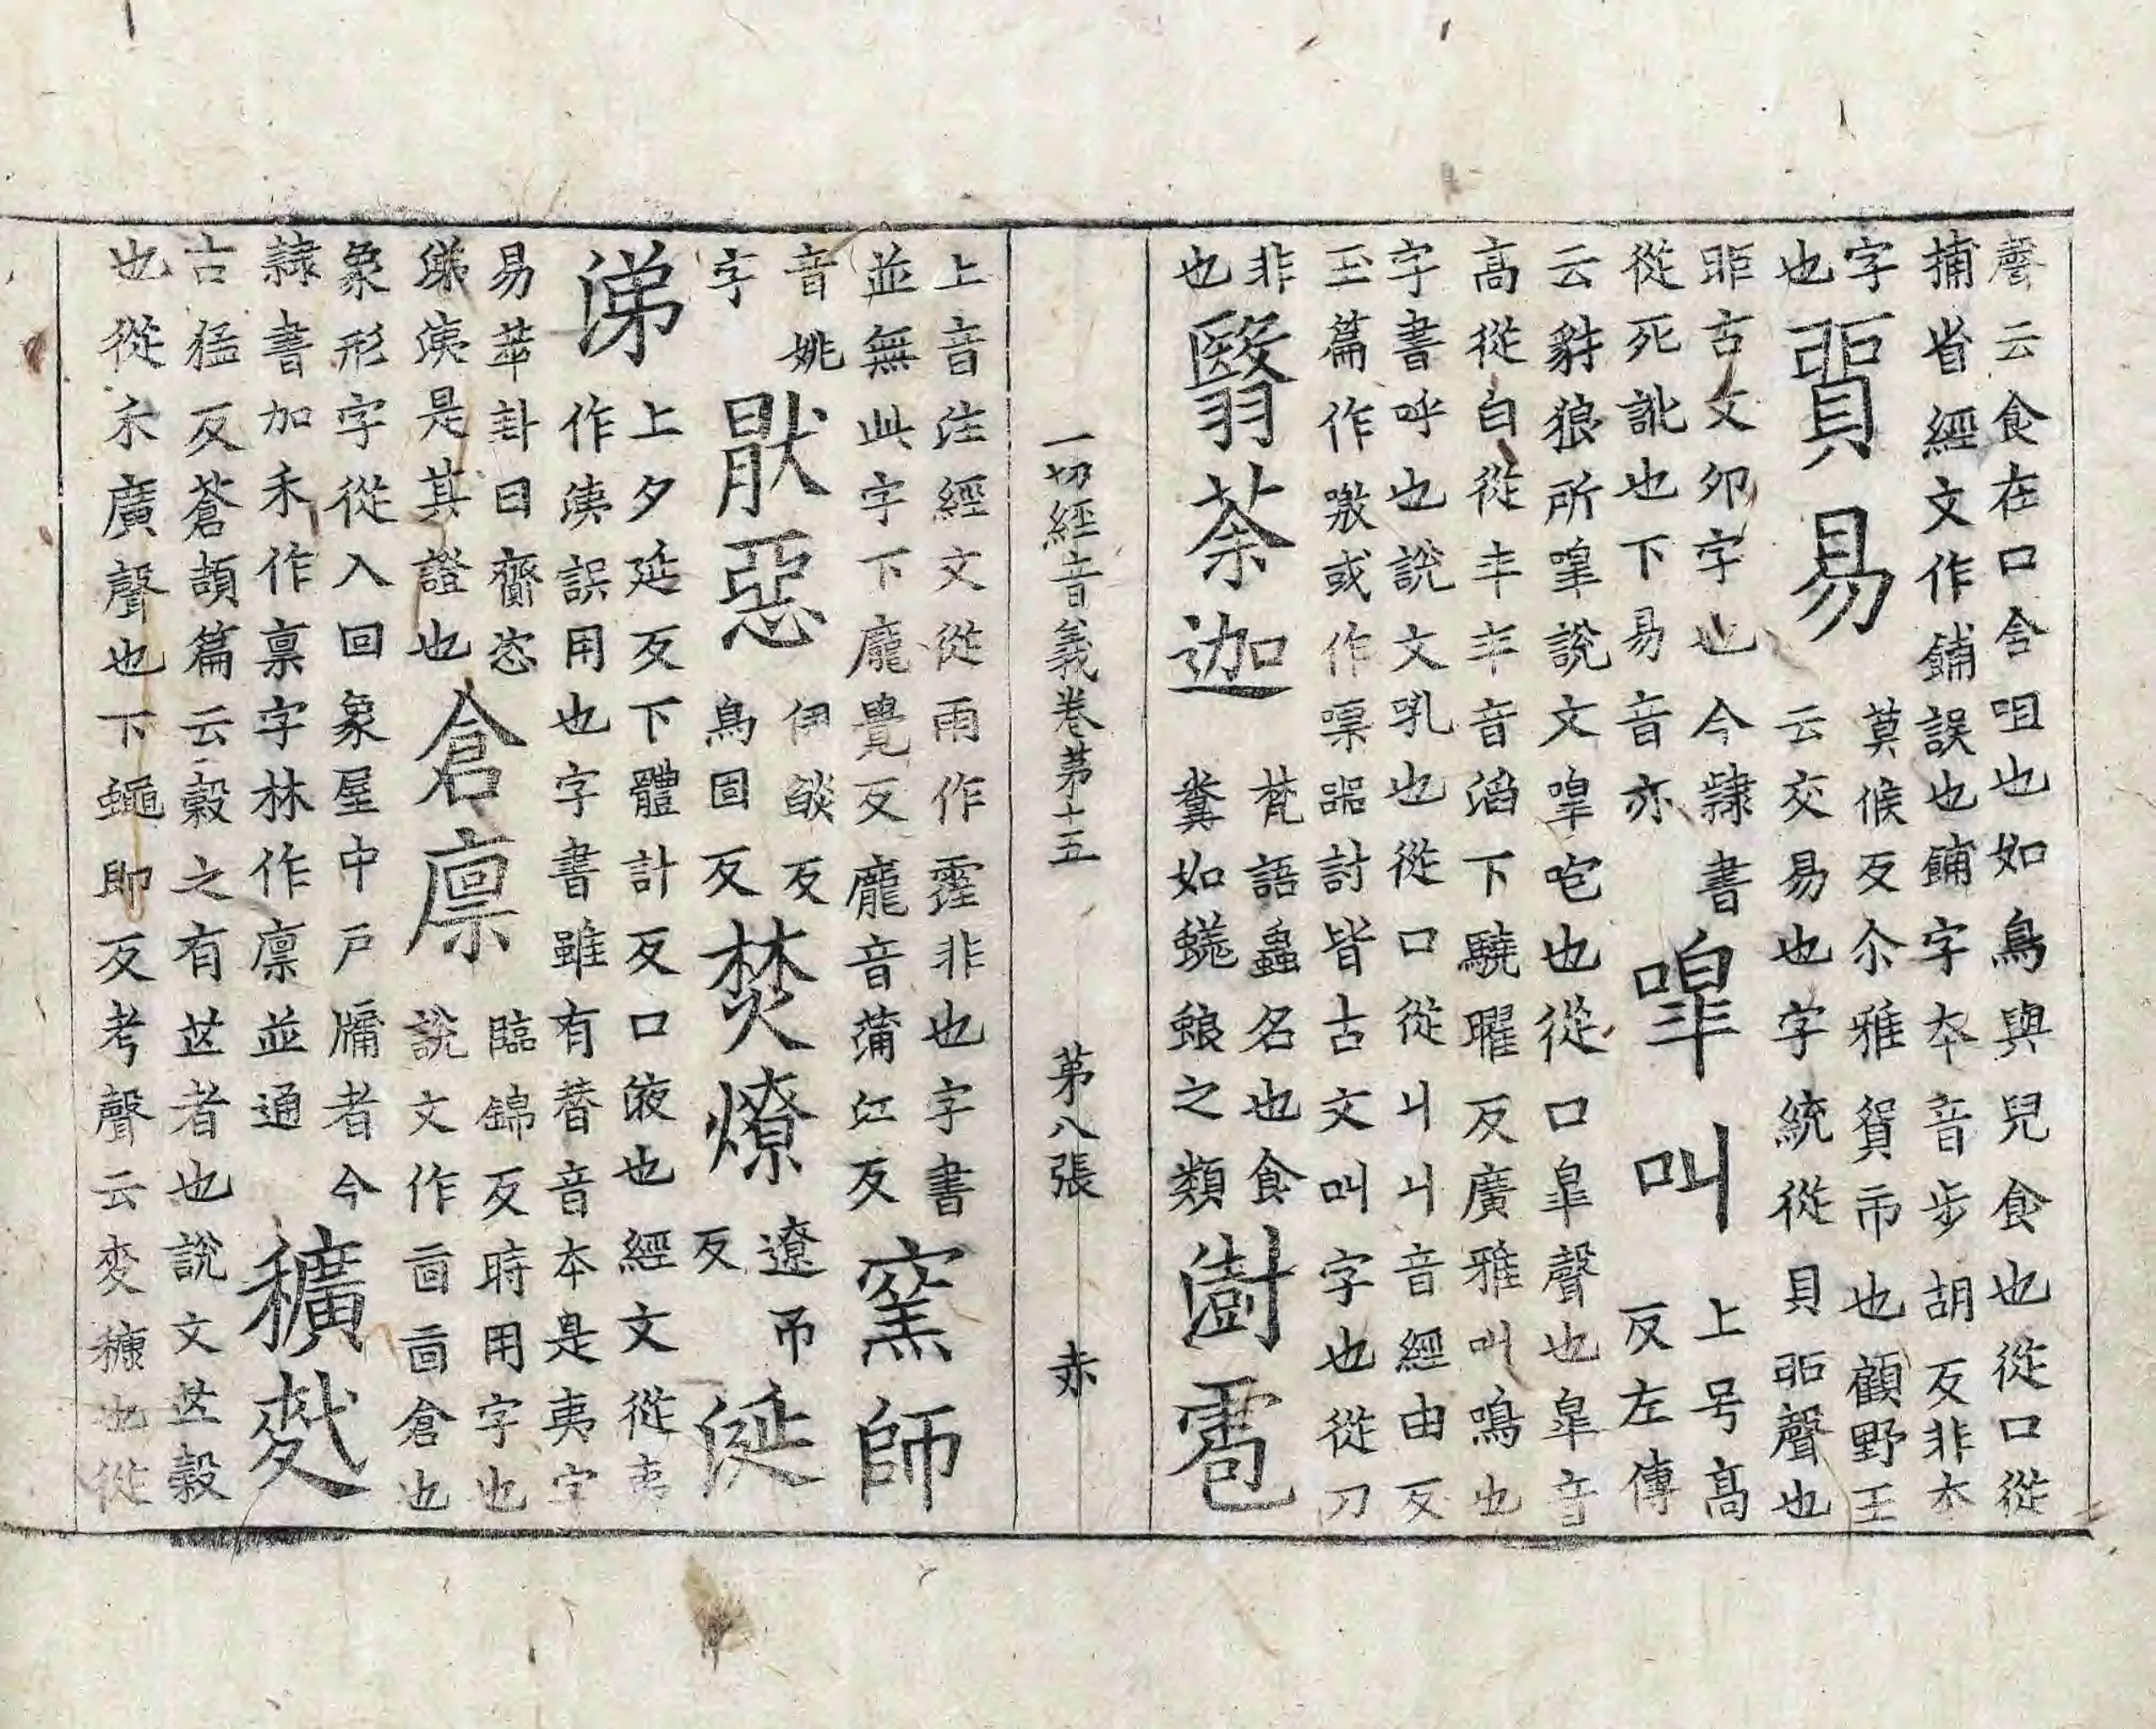 聲云食在口含咀也如鳥與兒食也從口從
捕省經文作鋪誤也餔字夲音步胡反非夲
字
也
貿易
莫候反尒雅貿市也顧野王
云交易也字統從貝聲也
古文夘字也今隸書
從死訛也下易音亦
嘷叫
上号髙
反左傳
云豺狼所嘷說文嘷咆也從口皐聲也皐音
髙從白從丰丰音滔下驍曜反廣雅叫鳴也
字書呼也說文吼也從口從丩丩音經由反
玉篇作噭或作嘄嘂討皆古文叫字也從刀
非
也
翳荼迦
梵語蟲名也食
糞如蜣蜋之類
澍雹
一切經音義卷苐十五　苐八張　赤
上音注經文從雨作霔非也字書
並無此字下龐覺反龐音蒲江反
窯師
音姚
字
猒惡
伊燄反
烏固反
焚燎
遼吊
反
涎
涕
上夕延反下體計反口液也經文從夷
作洟誤用也字書雖有替音夲是夷字
易萃卦曰齎咨
涕洟是其證也
倉廩
臨錦反時用字也
說文作㐭㐭倉也
象形字從入回象屋中戶牖者今
隸書加禾作稟字林作廩並通
穬麩
古猛反蒼頡篇云穀之有芒者也說文芒穀
也從禾廣聲也下蠅即反考聲云麥糠也從